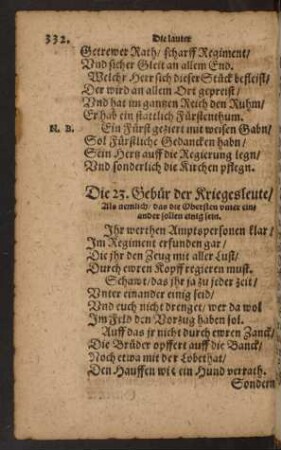 332. Die lauter
Getrewer Rath/ scharff Regiment/
Vnd sicher Gleit an allem End.
Welchr Herr sich dieser Stück befleist/
Der wird an allem Ort gepreist/
Vnd hat im gantzen Reich den Ruhm/
Er hab ein stattlich Fürstenthum.
N. B. Ein Fürst geziert mit weisen Gabn/
Sol Fürstliche Gedancken habn/
Sein Hertz auff die Regierung legn/
Vnd sonderlich die Kirchen pflegn.
Die 23. Gebür der Kriegesleute/
Als nemlich/ das die Obersten vnter ein/
ander sollen einig sein.
Ihr werthen Amptspersonen klar/
Im Regiment erfunden gar/
Die jhr den Zeug mit aller Lust/
Durch ewren Kopff regieren must.
Schawt/ das jhr ja zu jeder zeit/
Vnter einander einig seid/
Vnd euch nicht drenget/ wer da wol
Im Feld den Vorzug haben sol.
Auff das jr nicht durch ewren Zanck/
Die Brüder opffert auff die Banck/
Noch etwa mit der Lobethat/
Den Hauffen wie ein Hund verrath.
Sondern